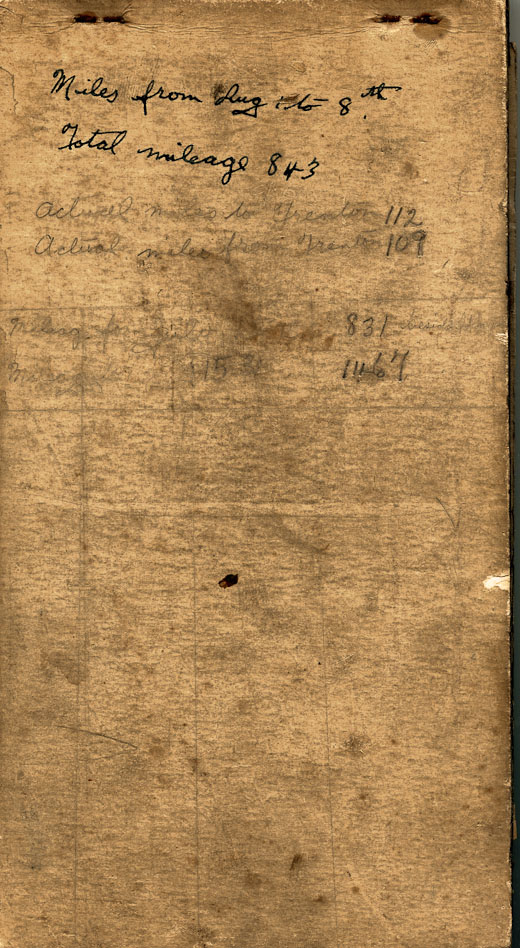 Miles from Aug 1 to 8th.
Total mileage 843
Actual miles to Trenton 112
Actual miles from Trenton 109
Mileage for 831
115 1467